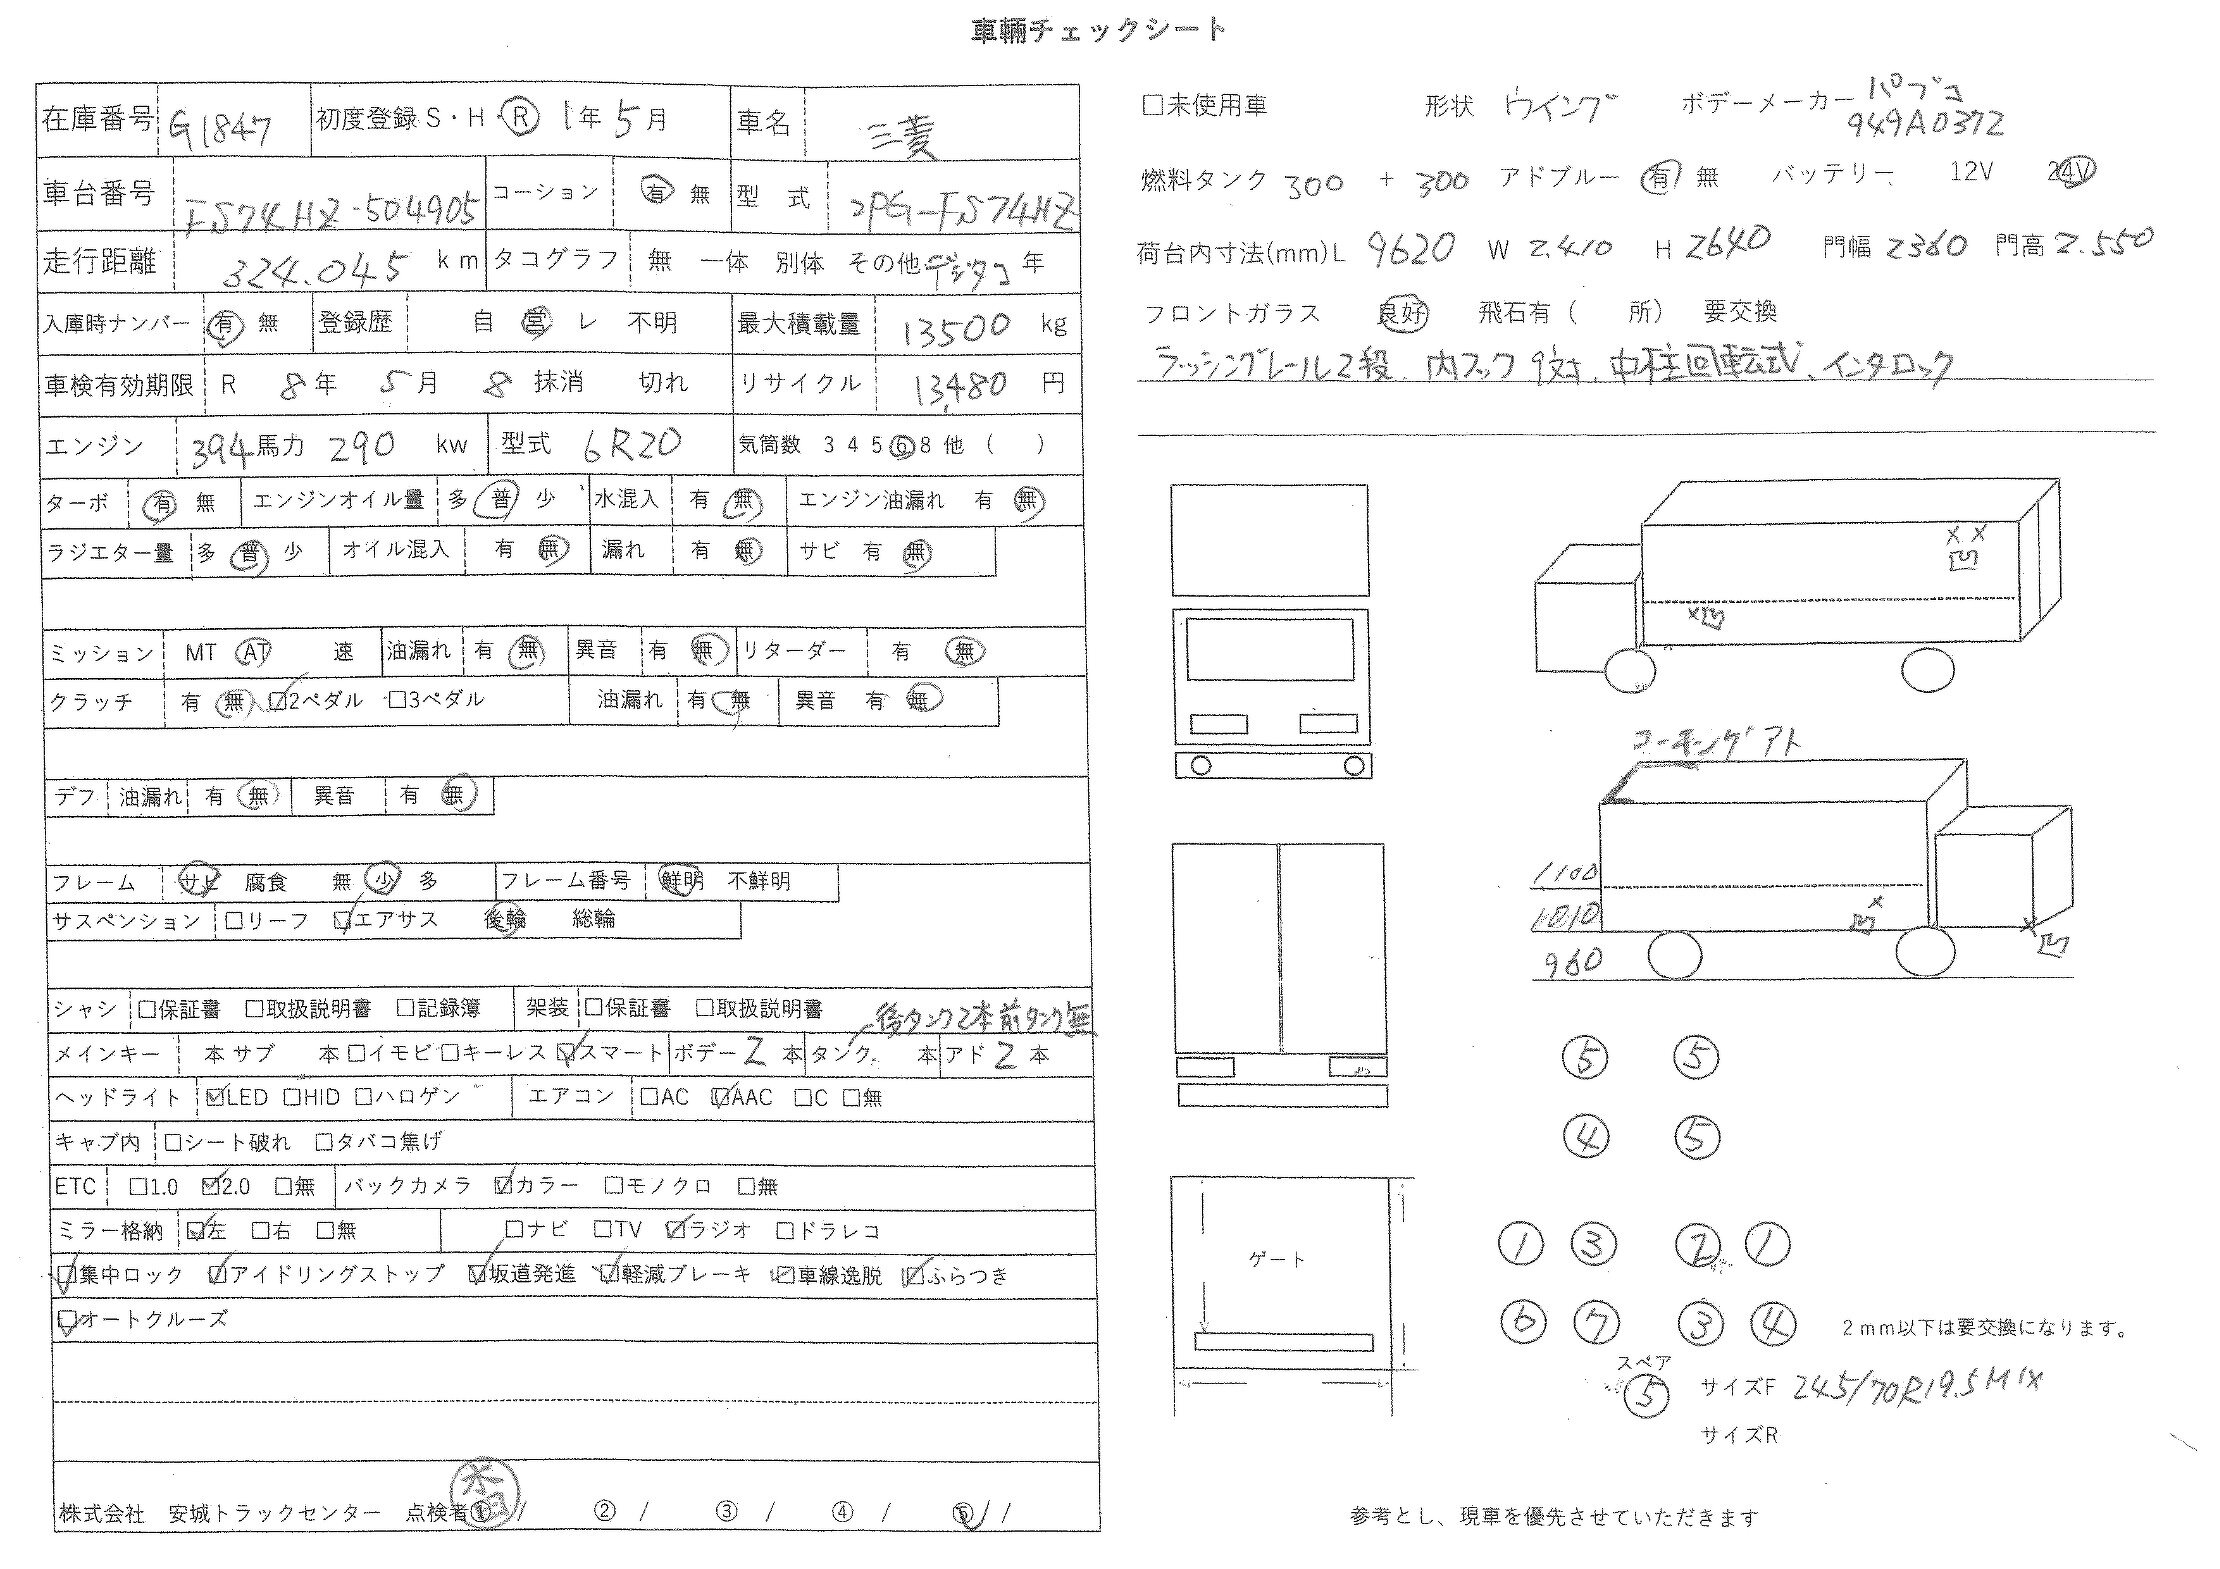 車輛チェックシート
在庫番号 G1847 初度登録 S・H・R 1年 5月 車名 三菱
車台番号 FS74HZ-504905 コーション 有 無 型 式 2PG-FS74HZ
走行距離 324.045 km タコグラフ 無 一体 別体 その他 デジタコ 年
入庫時ナンバー 有 無 登録歴 自 営 レ 不明 最大積載量 13500 kg
車検有効期限 R 8年 5月 8 抹消 切れ リサイクル 13,480 円
エンジン 394馬力 290 kw 型式 6R20 気筒数 3 4 5 6 8 他 ( )
ターボ 有 無 エンジンオイル量 多 普 少 水混入 有 無 エンジン油漏れ 有 無
ラジエター量 多 普 少 オイル混入 有 無 漏れ 有 無 サビ 有 無
ミッション MT AT 速 油漏れ 有 無 異音 有 無 リターダー 有 無
クラッチ 有 無 ☑2ペダル □3ペダル 油漏れ 有 無 異音 有 無
デフ 油漏れ 有 無 異音 有 無
フレーム サビ 腐食 無 少 多 フレーム番号 鮮明 不鮮明
サスペンション □リーフ ☑エアサス 後輪 総輪
シャシ □保証書 □取扱説明書 □記録簿 架装 □保証書 □取扱説明書
後タンク2本前タンク無
メインキー 本 サブ 本 □イモビ □キーレス ☑スマート ボデー 2 本 タンク 本 アド 2 本
ヘッドライト ☑LED □HID □ハロゲン エアコン □AC ☑AAC □C □無
キャブ内 □シート破れ □タバコ焦げ
ETC □1.0 ☑2.0 □無 バックカメラ ☑カラー □モノクロ □無
ミラー格納 ☑左 □右 □無 □ナビ □TV ☑ラジオ □ドラレコ
☑集中ロック ☑アイドリングストップ ☑坂道発進 ☑軽減ブレーキ ☑車線逸脱 ☑ふらつき
☑オートクルーズ
株式会社 安城トラックセンター 点検者① / ② / ③ / ④ / ⑤ / /
□未使用車 形状 ウイング ボデーメーカー パブコ
949A0372
燃料タンク 300 + 300 アドブルー 有 無 バッテリー 12V 24V
荷台内寸法(mm)L 9620 W 2,410 H 2640 門幅 2360 門高 2.550
フロントガラス 良好 飛石有 ( 所) 要交換
ラッシングレール2段、内フック9対、中柱回転式、インタロック
× ×
凹
×凹
コーキングアト
1100
1010
960
×
凹
×
凹
⑤ ⑤
④ ⑤
① ③ ② ①
⑥ ⑦ ③ ④
2mm以下は要交換になります。
スペア
⑤
サイズF 245/70R19.5MIX
サイズR
ゲート
参考とし、現車を優先させていただきます